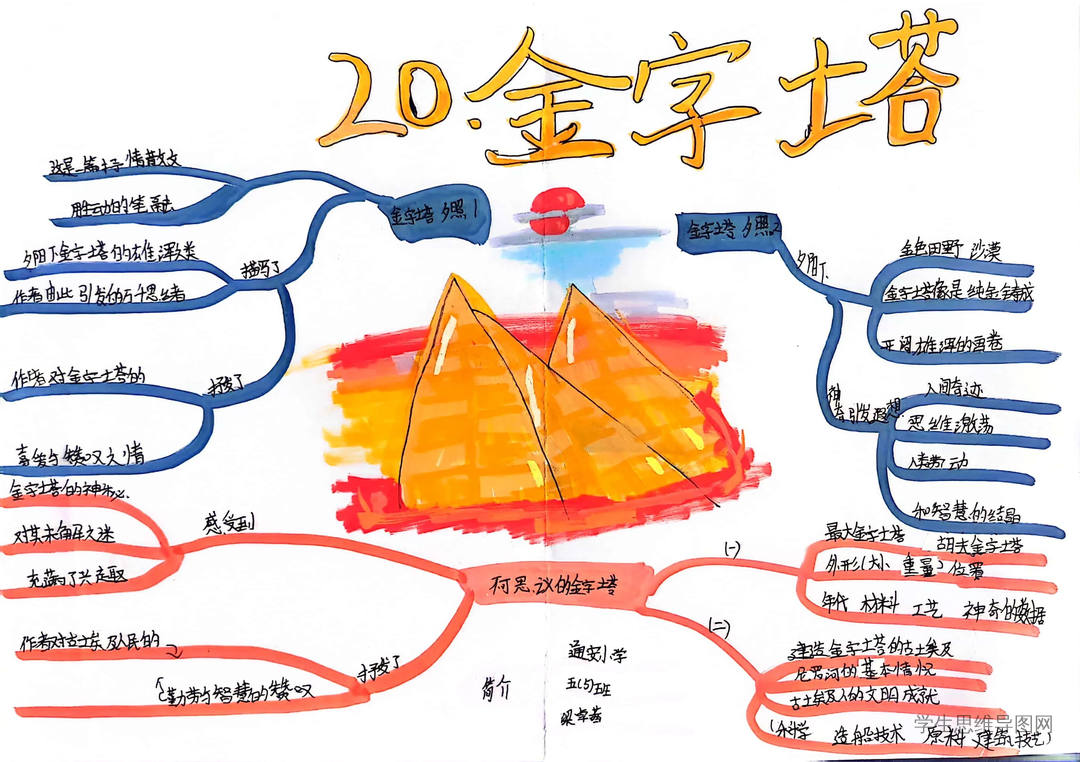 20.金字塔
金字塔夕照1
这是一篇抒情散文
用生动的笔融
描写了
夕阳下金字塔的雄浑美
作者由此引发的万千思绪
抒发了
作者对金字塔的
喜爱与赞叹之情
金字塔夕照2
夕阳下
金色田野 沙漠
金字塔像是纯金铸成
开阔雄浑的画卷
引发遐想
人间奇迹
思维激荡
人类劳动
和智慧的结晶
可思议的金字塔
感受到
金字塔的神秘
对其未解之迷
充满了兴趣
抒发了
作者对古埃及人民的
勤劳与智慧的赞叹
(一)
最大金字塔 胡夫金字塔
外形(大小 重量)位置
年代 材料 工艺 神奇的数据
(二)
建造金字塔的古埃及
尼罗河的基本情况
古埃及人的文明成就
(科学 造船技术 原料 建筑技艺)
简介
通安小学
五(5)班
学生思维导图网